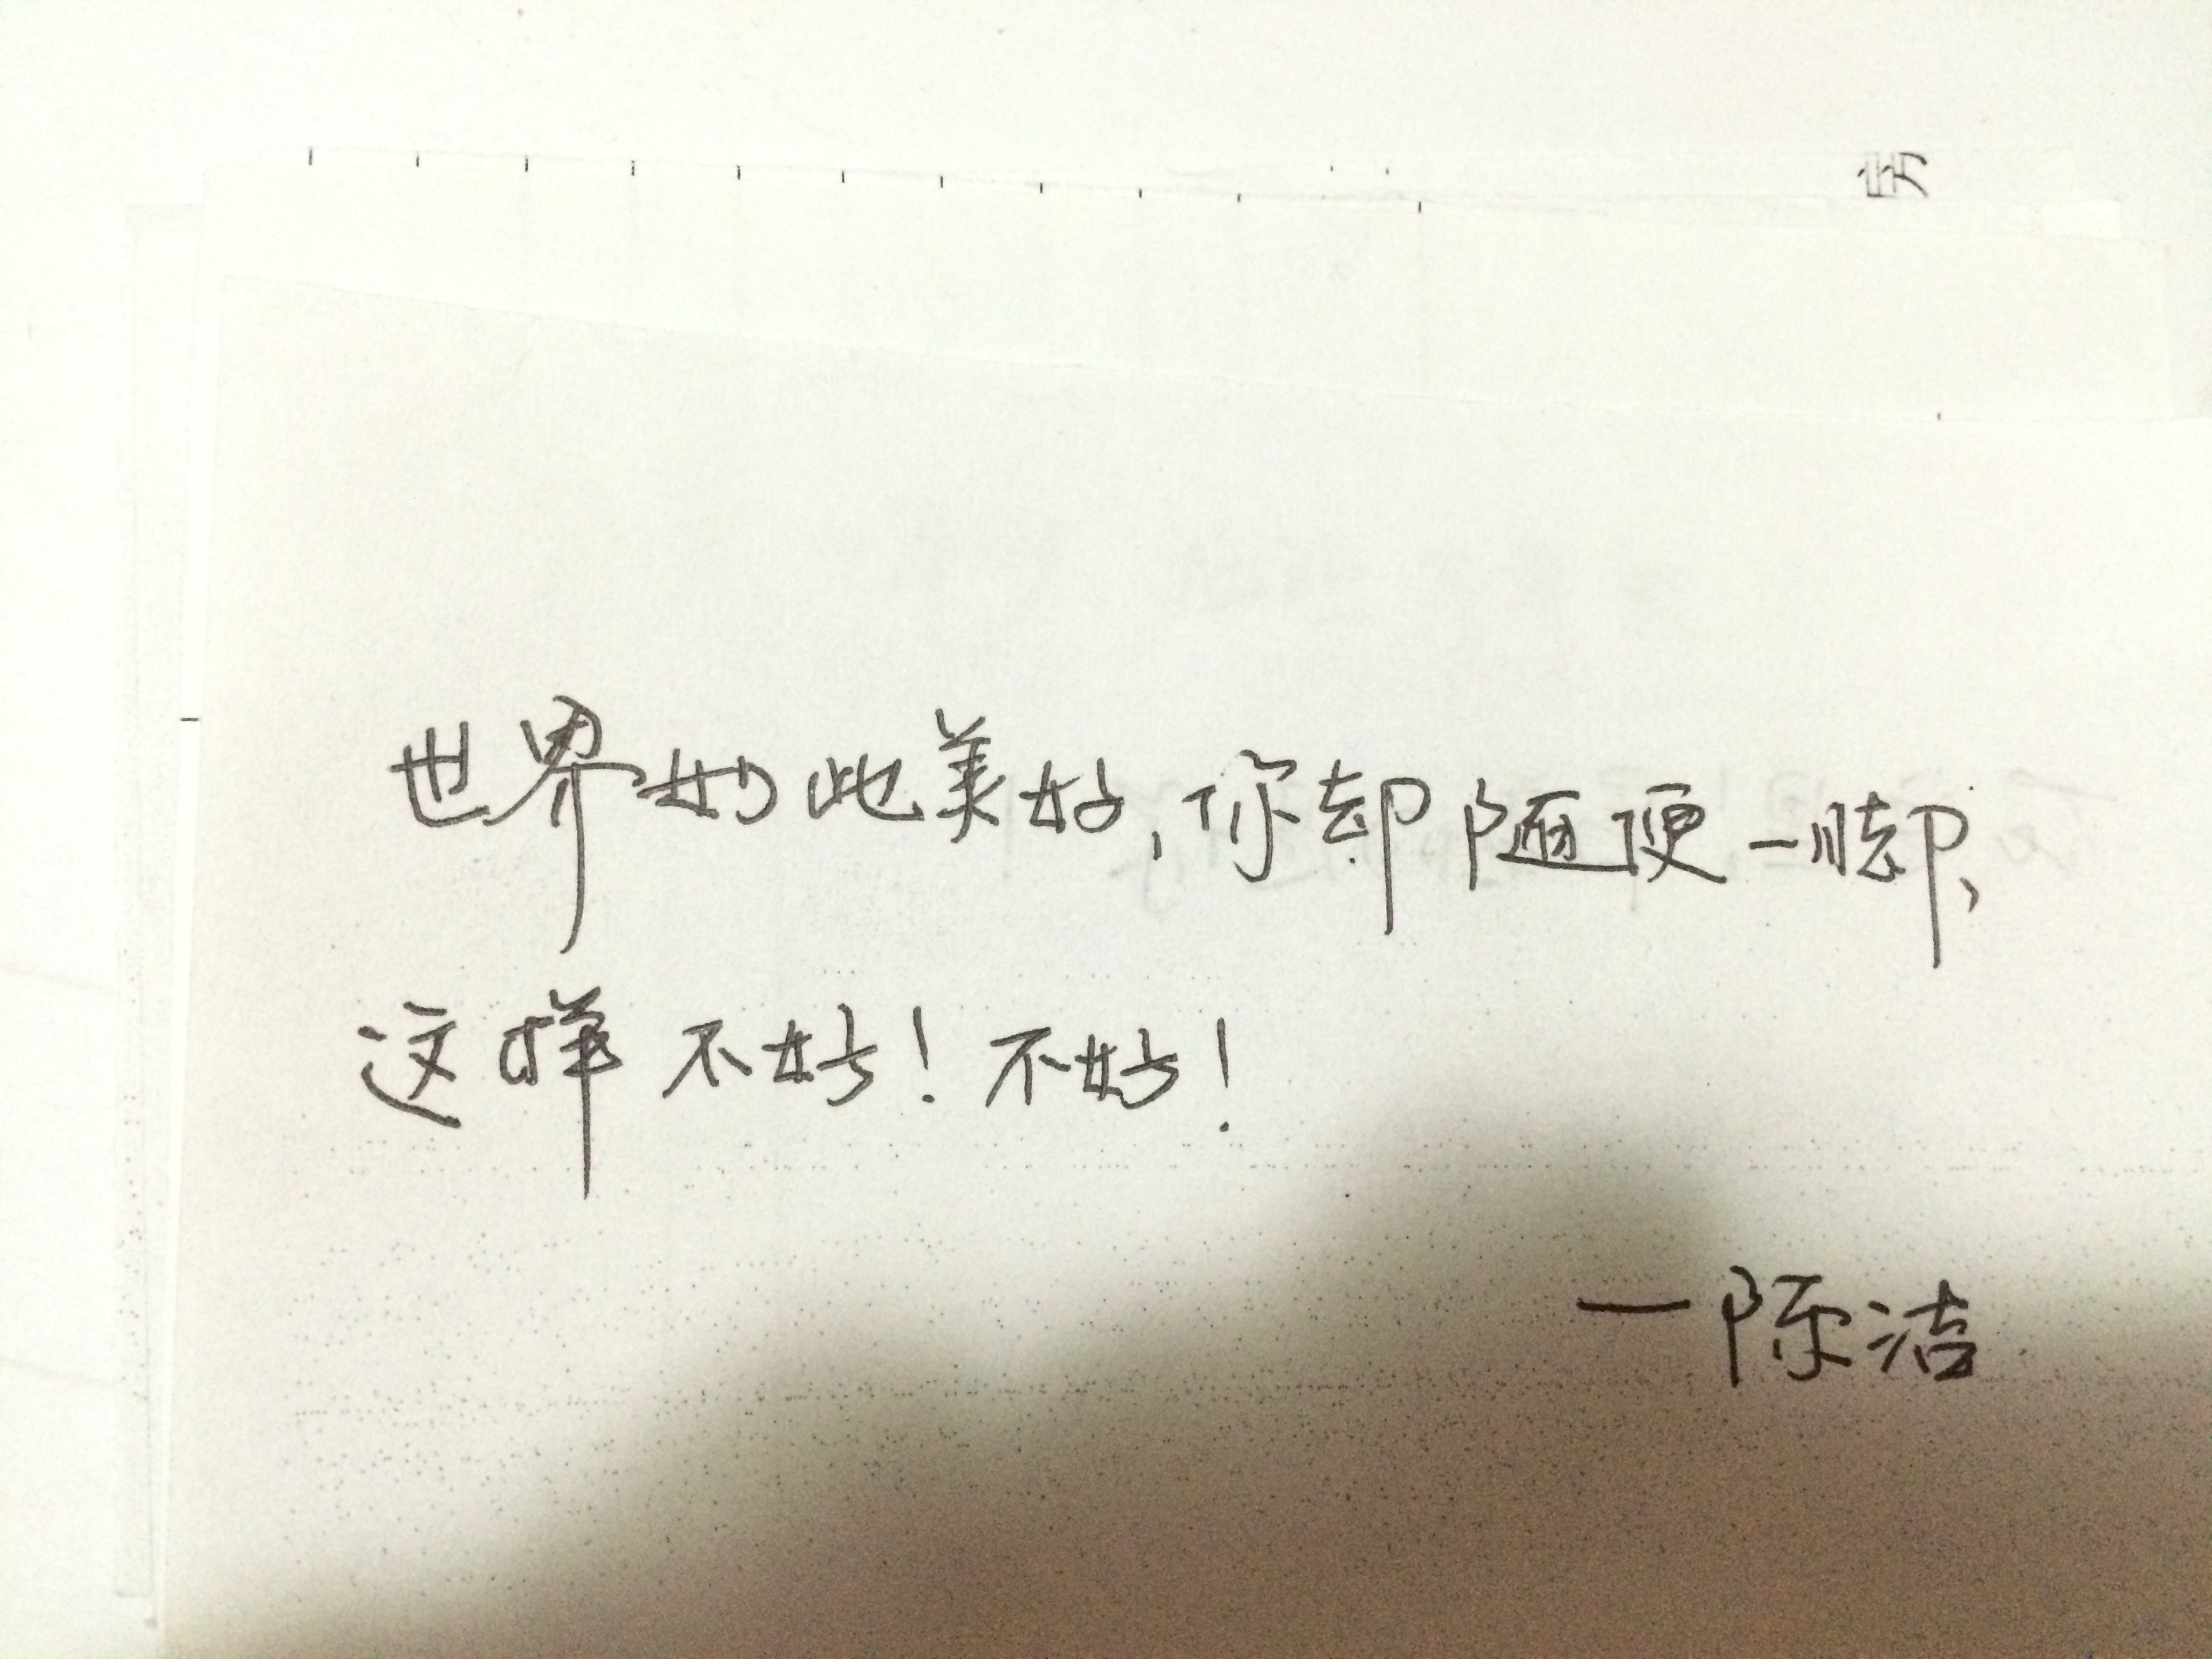 世界如此美好,你却随便一脚,
这样不好!不好!
—陈洁